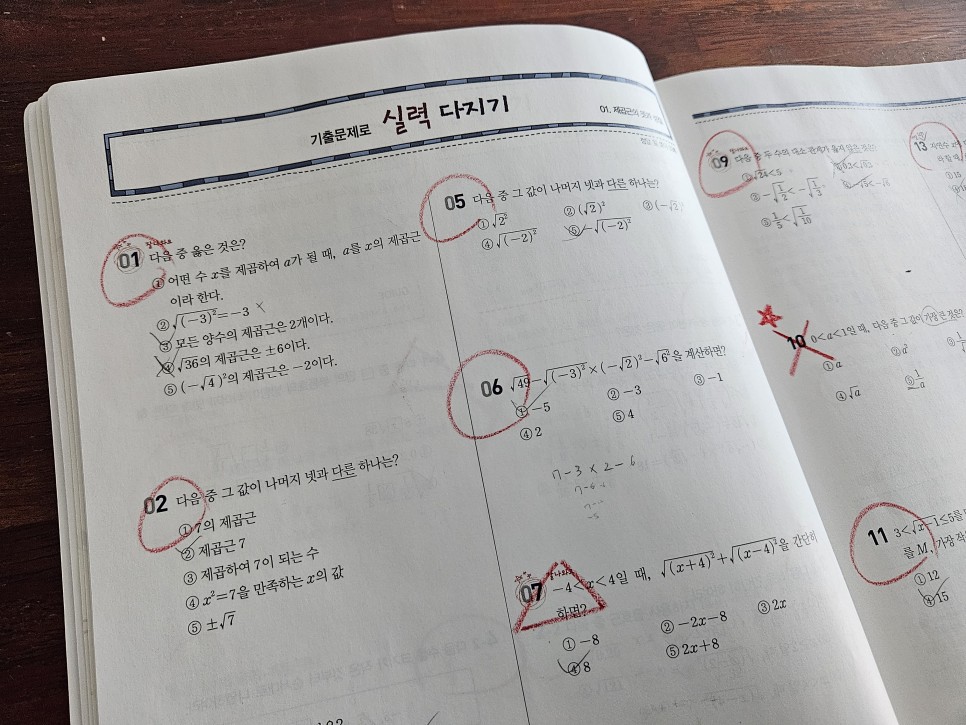 기출문제로 실력 다지기
01. 제곱근의
01 다음 중 옳은 것은?
① 어떤 수 x를 제곱하여 a가 될 때, a를 x의 제곱근
이라 한다.
② √(-3)²=-3 ×
③ 모든 양수의 제곱근은 2개이다.
④ √36의 제곱근은 ±6이다.
⑤ (-√4)²의 제곱근은 -2이다.
02 다음 중 그 값이 나머지 넷과 다른 하나는?
① 7의 제곱근
② 제곱근 7
③ 제곱하여 7이 되는 수
④ x²=7을 만족하는 x의 값
⑤ ±√7
05 다음 중 그 값이 나머지 넷과 다른 하나는?
① √2² ② (√2)² ③ (-√2)
④ √(-2)² ⑤ -√(-2)²
06 √49-√(-3)²×(-√2)²-√6²을 계산하면?
① -5 ② -3 ③ -1
④ 2 ⑤ 4
7-3×2-6
07 -4<x<4일 때, √(x+4)²+√(x-4)²을 간단히
하면?
① -8 ② -2x-8 ③ 2x
④ 8 ⑤ 2x+8
09 다음 중 두 수의 대소 관계가 옳지 않은 것은?
① √24<5
③ -√1/2<-√1/3
⑤ 1/5<√1/10
10 0<a<1일 때, 다음 중 그 값이 가장 큰 것은?
① a ② a²
④ √a ⑤ 1/a
11 3<√x-1≤5를
를 M, 가장 작
① 12
④ 15
13 자연수